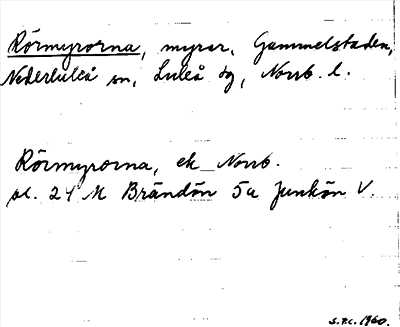 Rörmyrorna, myrar, Gammelstaden,
Nederluleå sn, Luleå tg, Norrb. l.
Rörmyrorna, ek Norrb.
bl. 24 M Brändön 5a Junkön V.
S.F.C. 1960.